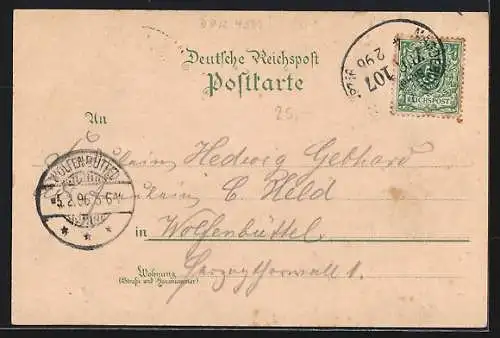 Deutsche Reichspost
Postkarte
107
2 96
REICHSPOST
25,-
An
Hedwig Gebhard
WOLFENBÜTTEL
5.2.96.5-6N
C. Held
in Wolfenbüttel.
Wohnung
(Straße und Hausnummer)
Herzogthorwall 1.